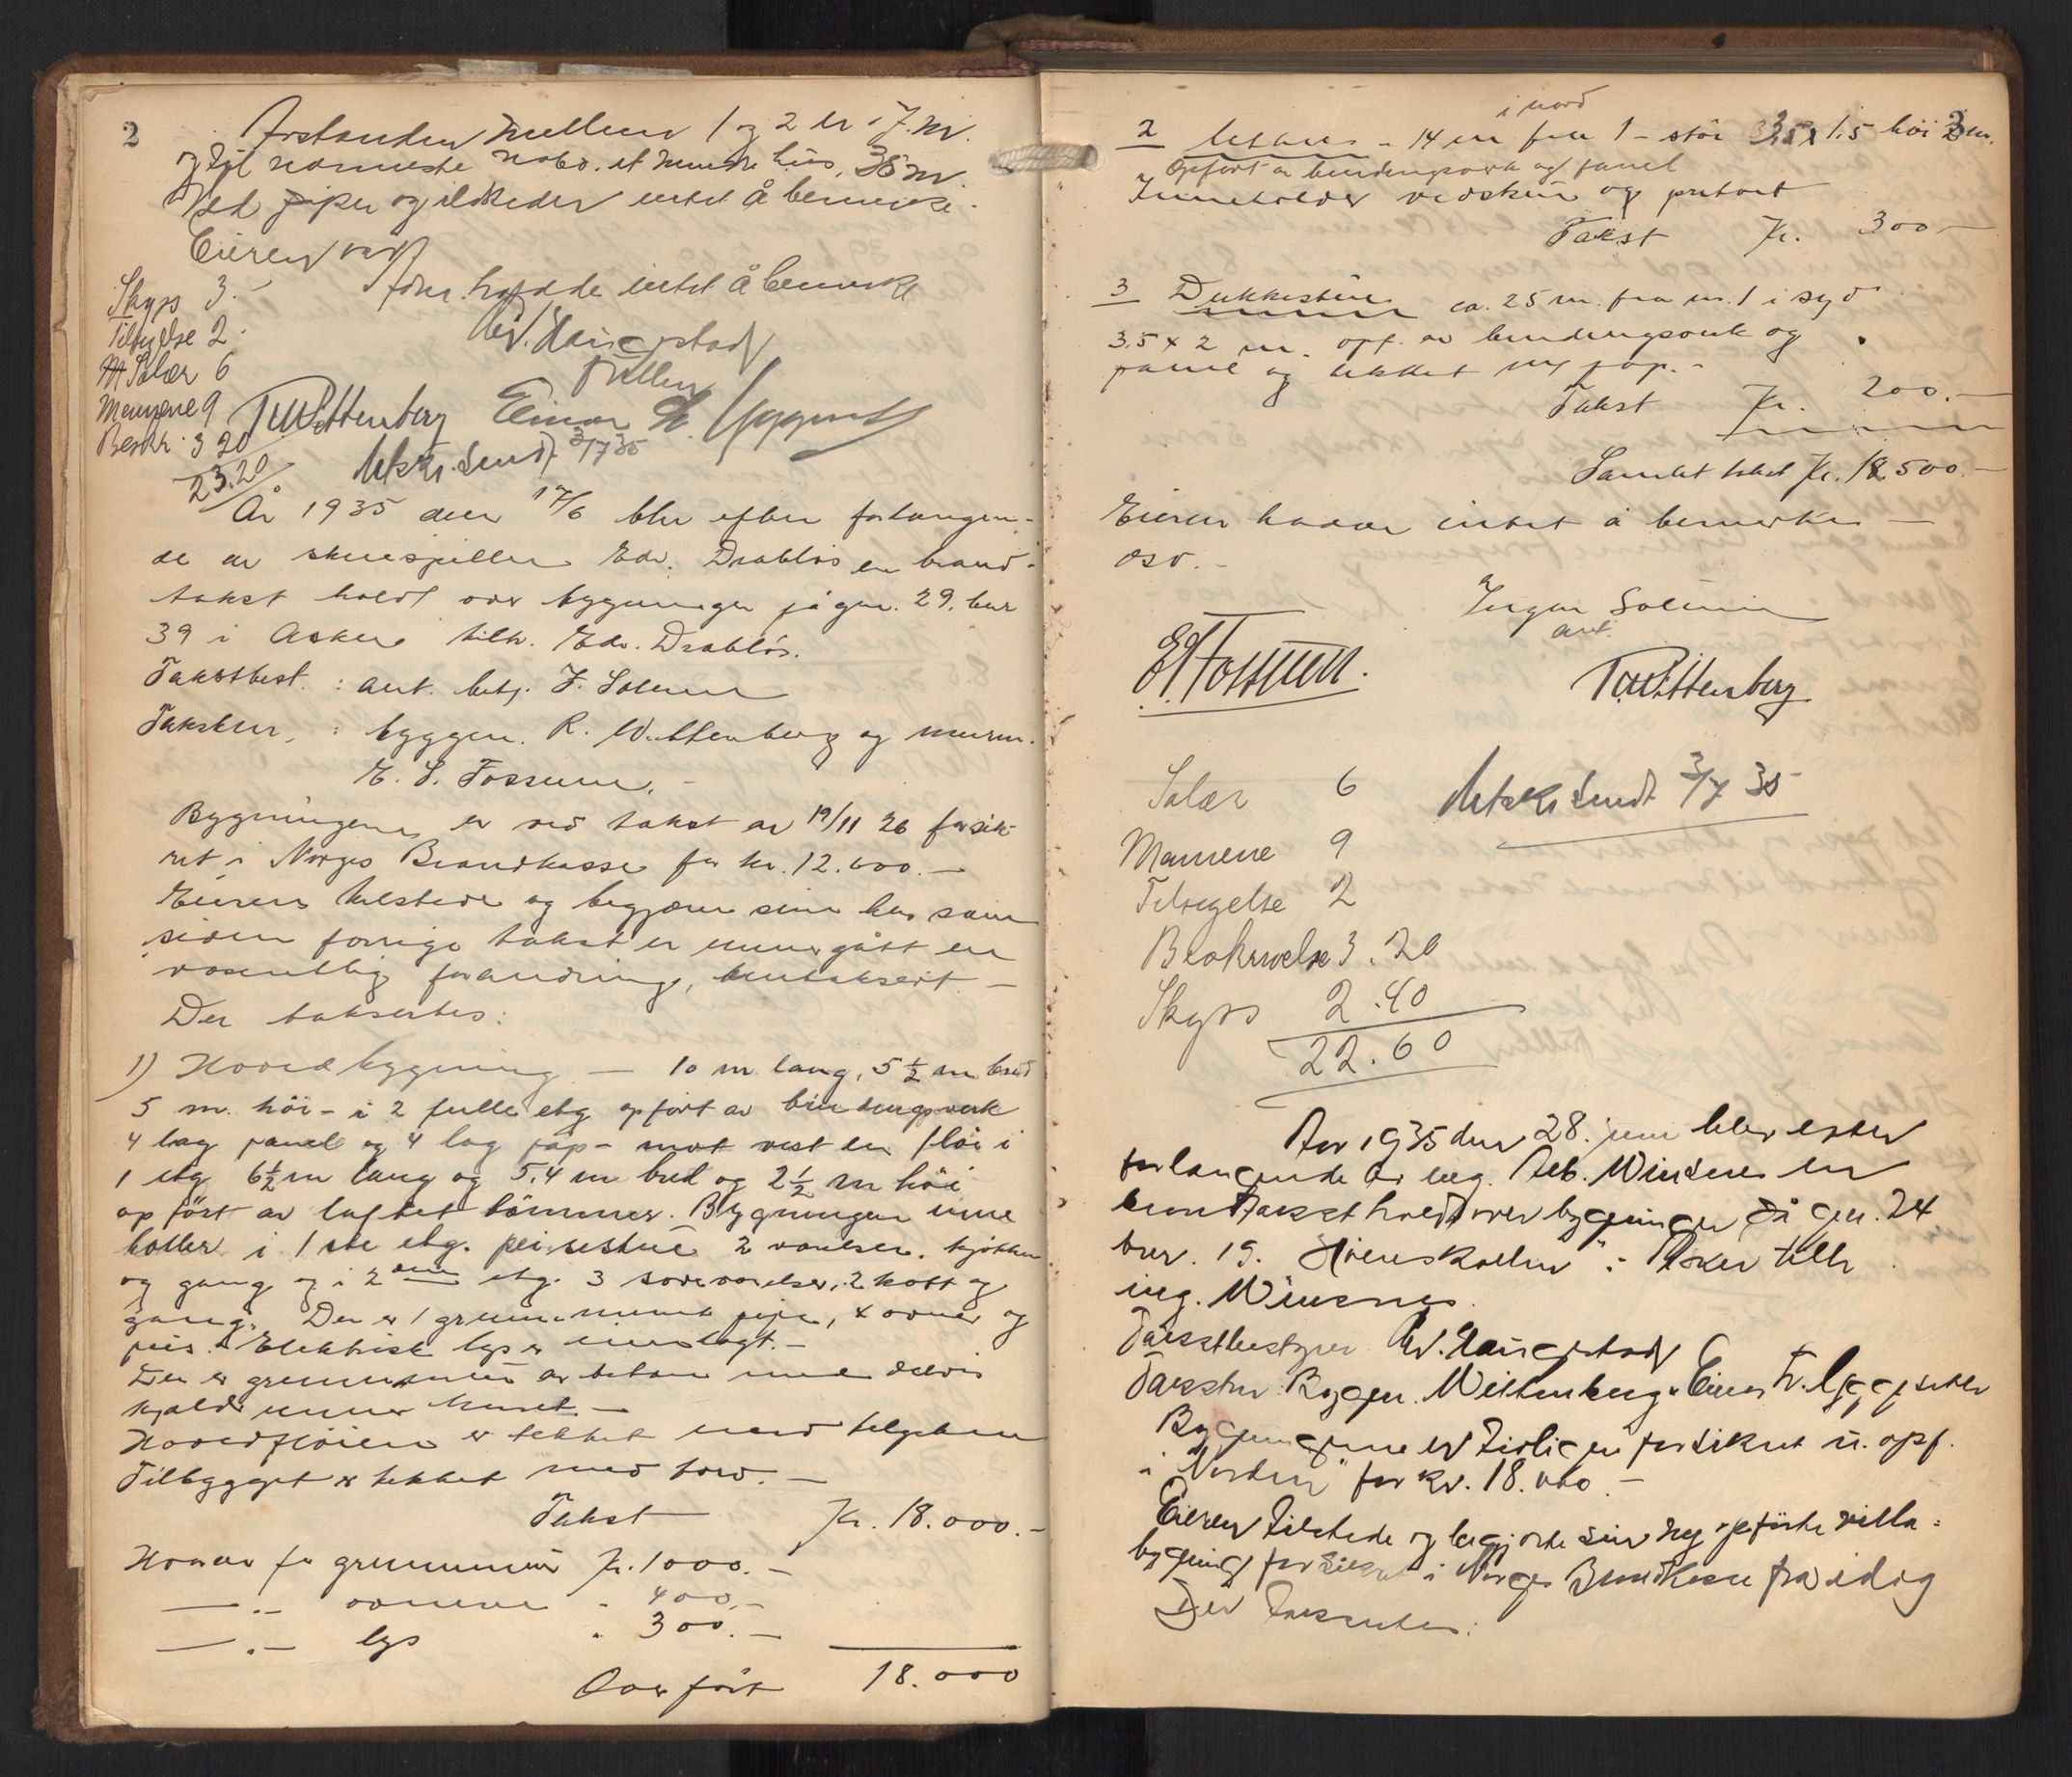 2
Avstanden mellem 1 og 2 er 7. m.
og til nærmeste nabo, et mindre hus, 38 m.
Ved piper og ildsteder intet å bemerke.
Eieren var
hadde intet å bemerke
Skyss 3.-
Tilsigelse 2.-
Salær 6
Mennene 9
Beskr. 3 20
23.20
TWittenberg Einar Fr.
Utskr. sendt 3/7 35
År 1935 den 17/6 blev efter forlangen-
de av skuespiller Edv. Drabløs en brand-
takst holdt over bygninger på gnr. 29, bnr
39 i Asker tilh. Edv. Drabløs.
Takstbest. : ant. betj. J. Solum
Takstm. : byggm. R. Wittenberg og murm.
E. S. Fossum. -
Bygningene er ved takst av 19/11 26 forsik-
ret i Norges Brandkasse for kr. 12.600.-
Eieren tilstede og begjærer sine hus som
siden forrige takst er undergått en
vesentlig forandring, omtaksert. -
Der takseres:
1) Hovedbygning - 10 m lang, 5 1/2 m bred
5 m. höi - i 2 fulle etg opført av bindingsverk
4 lag panel og 4 lag pap - mot vest en flöi i
1 etg 6 1/2 m lang og 5,4 m bred og 2 1/2 m höi
opfört av laftet tömmer. Bygningen inne
holder i 1ste etg. peisestue 2 værelser, kjøkken
og gang og i 2den etg. 3 soveværelser, 2 kott og
gang. Der er 1 grunnmuret pipe, 4 ovner og
peis. Elektrisk lys er innlagt. -
Der er grunnmur av betong med delvis
kjelder under huset -
Hovedflöien er tekket med teglsten
Tilbygget er tekket med torv. -
Takst Kr. 18.000.-
Herav for grunnmur Kr. 1000.-
- " - ovnene " 400.-
- " - lys " 300.-
Overfört 18.000
3
i nord
2 Uthus - 14 m fra 1 - stör 3,5 x 1.5 höi 2 m.
Opført av bindingsverk og panel
Inneholder vedskur og privat
Takst Kr. 300-
3 Dukkestue ca. 25 m. fra nr. 1 i syd
3.5 x 2 m. opf. av bindingsverk og
panel og tekket m/ pap. -
Takst Kr. 200.-
Samlet takst Kr. 18.500.-
Eieren hadde intet å bemerke -
osv. -
Solum
ant.
E S Fossum.
TWittenberg
Salær 6
Utskr. sendt 3/7 35
Mennene 9
Tilsigelse 2
Beskrivelse 3.20
Skyss 2.40
22.60
Aar 1935 den 28. juni blev efter
forlangende av ing. Alb. Winsnes en
branntakst holdt over bygninger på gnr. 24
bnr. 19. "Høienskollen" i Asker tilh
ing. Winsnes.
Takstbestyrer
Takstm: Byggm. Wittenberg & Einar Fr.
Bygningene er tidligere forsikret u. opf.
i "Norden" for kr. 18.000. -
Eieren tilstede og begjærte sin nyopførte villa-
bygning forsikret i Norges Brandkasse fra idag
Der takseres: